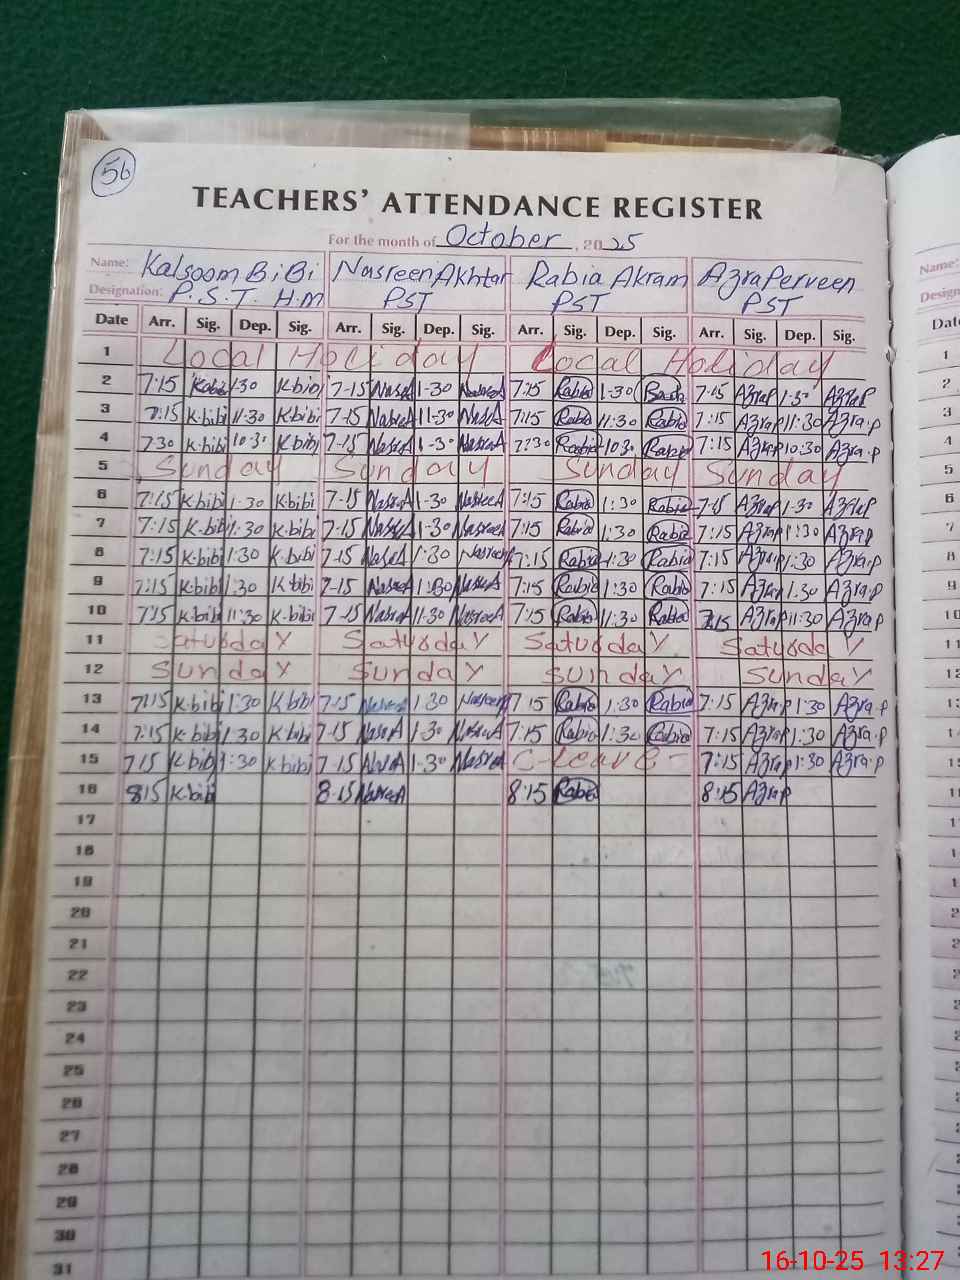 56
TEACHERS' ATTENDANCE REGISTER
For the month of October, 2025
Name: Kalsoom BiBi Nasreen Akhtar Rabia Akram Azra Perveen
Designation: P.S.T. H.M PST PST PST
Date Arr. Sig. Dep. Sig. Arr. Sig. Dep. Sig. Arr. Sig. Dep. Sig. Arr. Sig. Dep. Sig.
1 Local Holiday Local Holiday
2 7:15 1:30 K-bibi 7-15 NasreA 1-30 NasreeA 7:15 Rabia 1-30 7-15 AzraP 1:30 AzraP
3 7:15 K-bibi 11-30 K-bibi 7-15 NasreeA 11-30 NasreA 7:15 Rabia 11:30 Rabia 7:15 AzraP 11:30 Azra.P
4 7:30 K-bibi 10:30 K-bibi 7-15 NasreeA NasreeA 7:30 Rabia 10:30 Rabia 7:15 AzraP 10:30 Azra.P
5 Sunday Sunday Sunday Sunday
6 7:15 K-bibi 1:30 K-bibi 7-15 NasreeA 1-30 NasreeA 7:15 Rabia 1:30 Rabia 7-15 AzraP 1-30 AzraP
7 7:15 K-bibi 1:30 K-bibi 7-15 1-30 Nasreen 7:15 Rabia 1:30 Rabia 7:15 AzraP 1:30 AzraP
8 7:15 K-bibi 1:30 K-bibi 7-15 1:30 7:15 Rabia 1:30 Rabia 7:15 AzraP 1:30 AzraP
9 7:15 K-bibi 1:30 K-bibi 7-15 NasreeA 1:30 NasreeA 7:15 Rabia 1:30 Rabia 7:15 Azra 1-30 AzraP
10 7:15 K-bibi 11:30 K-bibi 7-15 NasreeA 11-30 NasreeA 7:15 Rabia 11:30 Rabia 7:15 AzraP 11:30 AzraP
11 Saturday Saturday Saturday Saturday
12 Sunday Sunday Sunday Sunday
13 7:15 K-bibi 1:30 K-bibi 7-15 1-30 Nasreen 7:15 Rabia 1:30 Rabia 7:15 AzraP 1:30 Azra.P
14 7:15 K-bibi 1:30 K-bibi 7-15 NasreA 1-30 NasreeA 7:15 Rabia 1:30 Rabia 7:15 AzraP 1:30 Azra.P
15 7:15 K-bibi 1:30 K-bibi 7-15 NasreA 1-30 NasreeA C-Leave- 7:15 AzraP 1:30 Azra.P
16 8:15 K-bibi 8-15 NasreeA 8:15 Rabia 8:15 AzraP
17
18
19
20
21
22
23
24
25
26
27
28
29
30
31
Name:
16-10-25 13:27